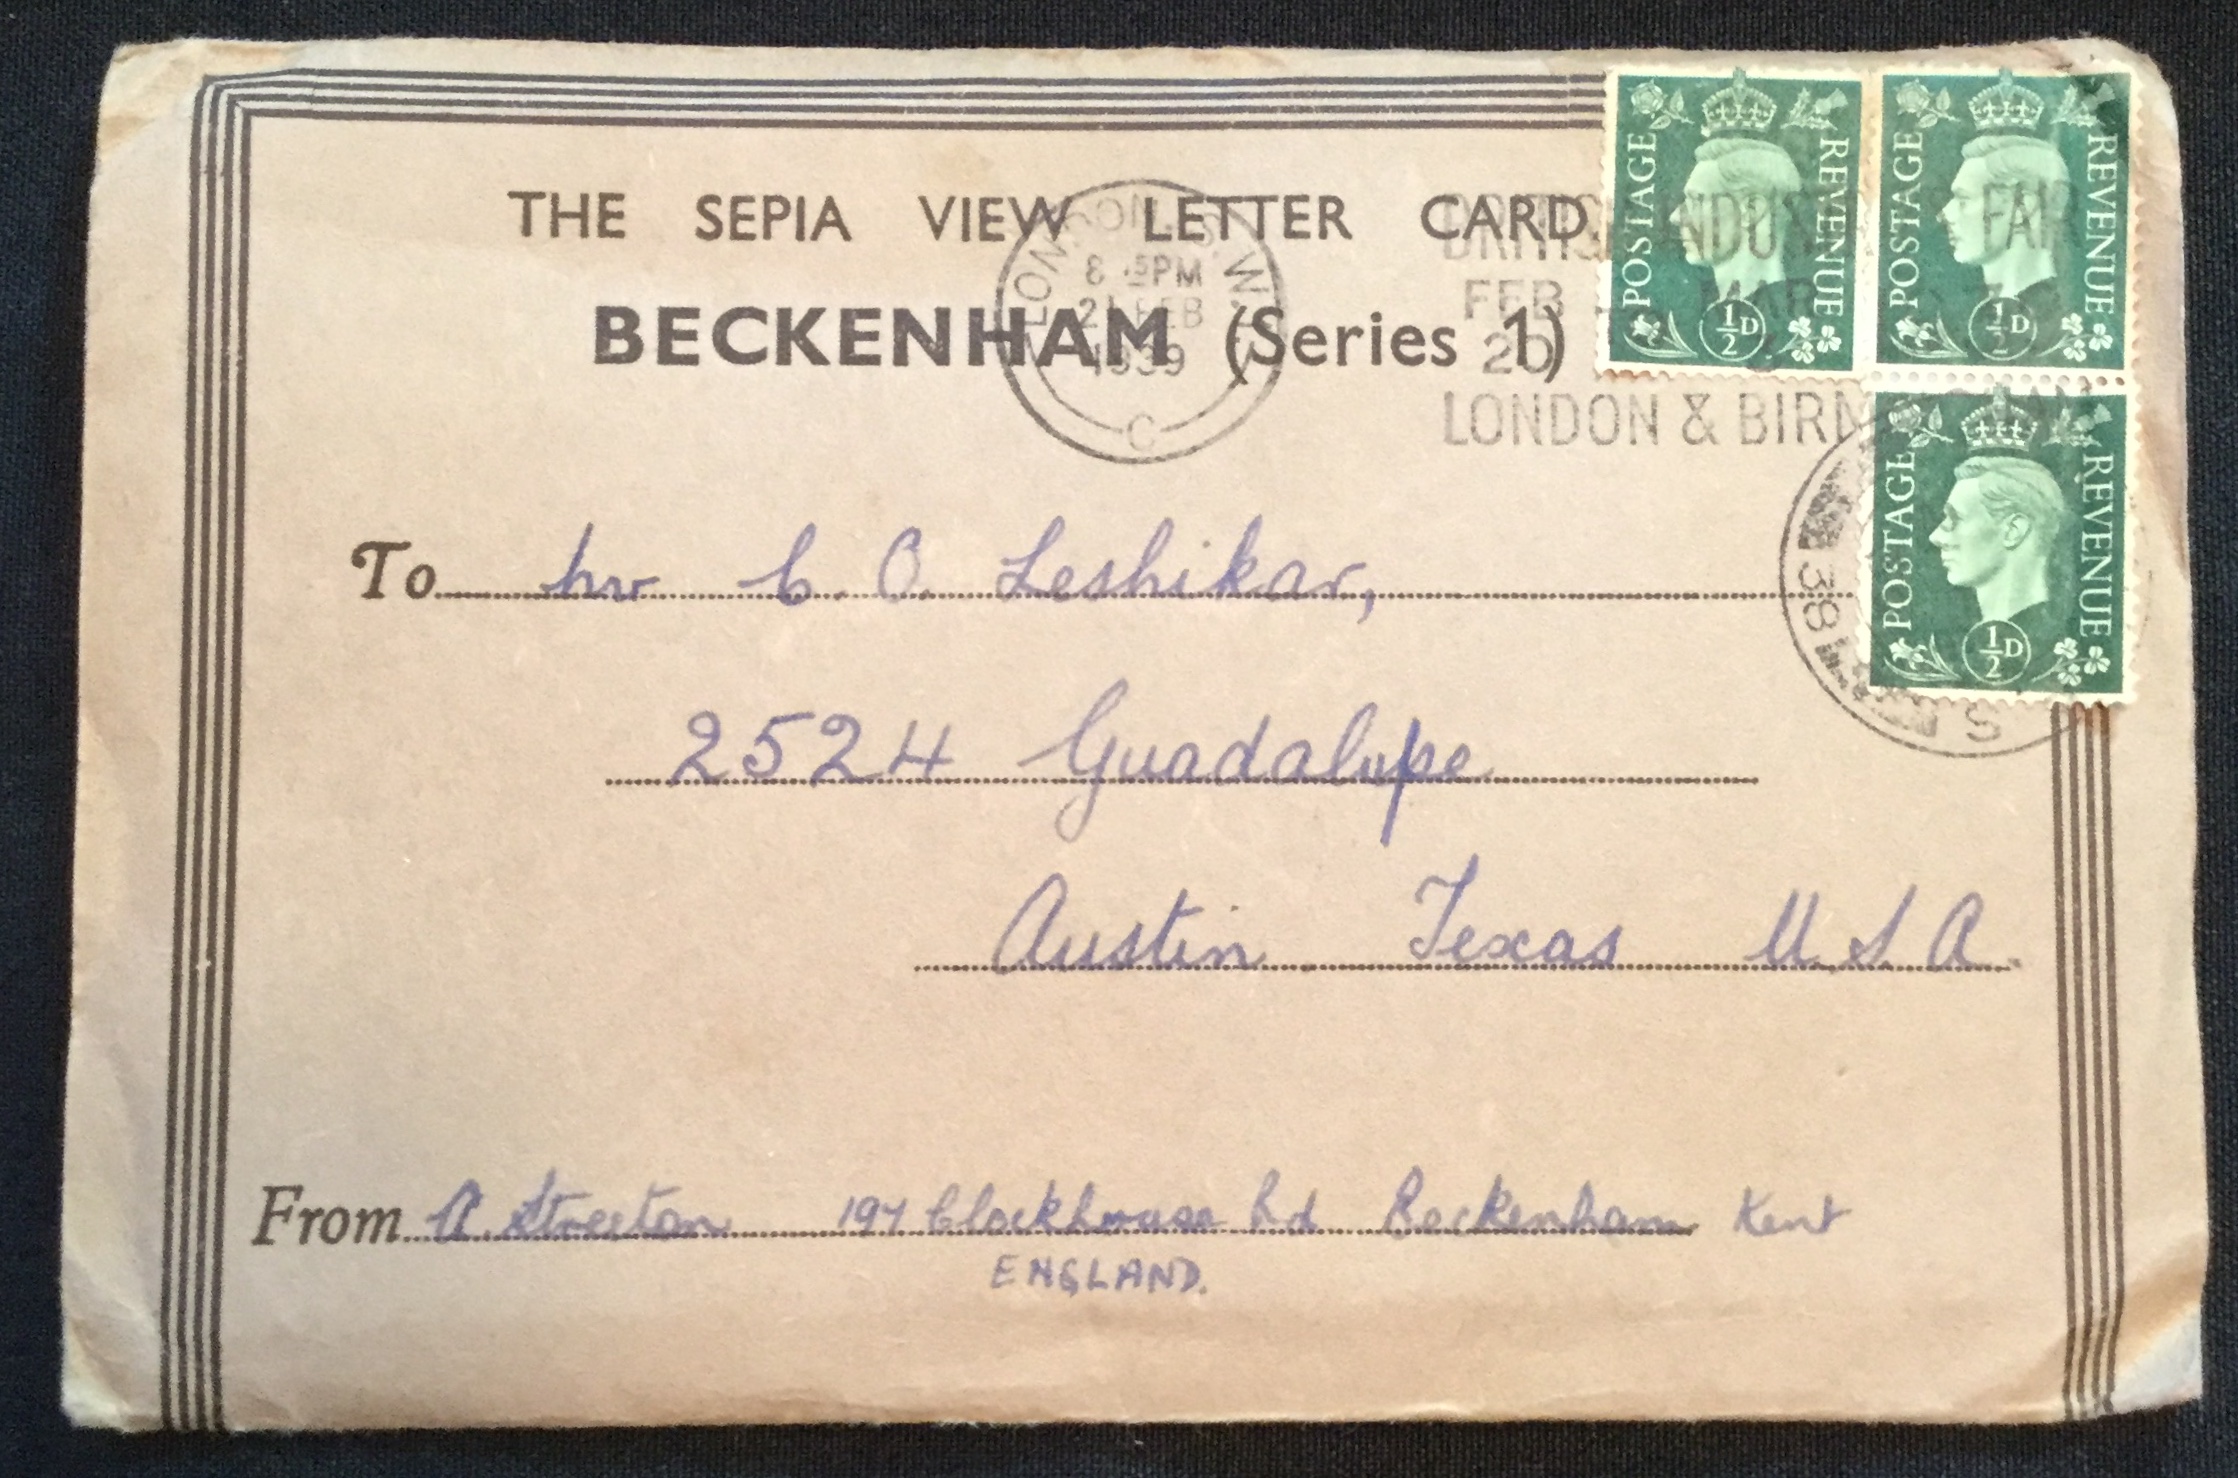 THE SEPIA VIEW LETTER CARD.
BECKENHAM (Series 1)
LONDON S.W.1
8 15 PM
21 FEB
1939
C
BRITISH INDUSTRIES FAIR
FEB 20 MAR 3
LONDON & BIRMINGHAM
POSTAGE REVENUE
½D
POSTAGE REVENUE
½D
POSTAGE REVENUE
½D
38
S
To Mr C. O. Leshikar,
2524 Guadalupe
Austin Texas U.S.A.
From A. Streeton 197 Clockhouse Rd Beckenham Kent
ENGLAND.